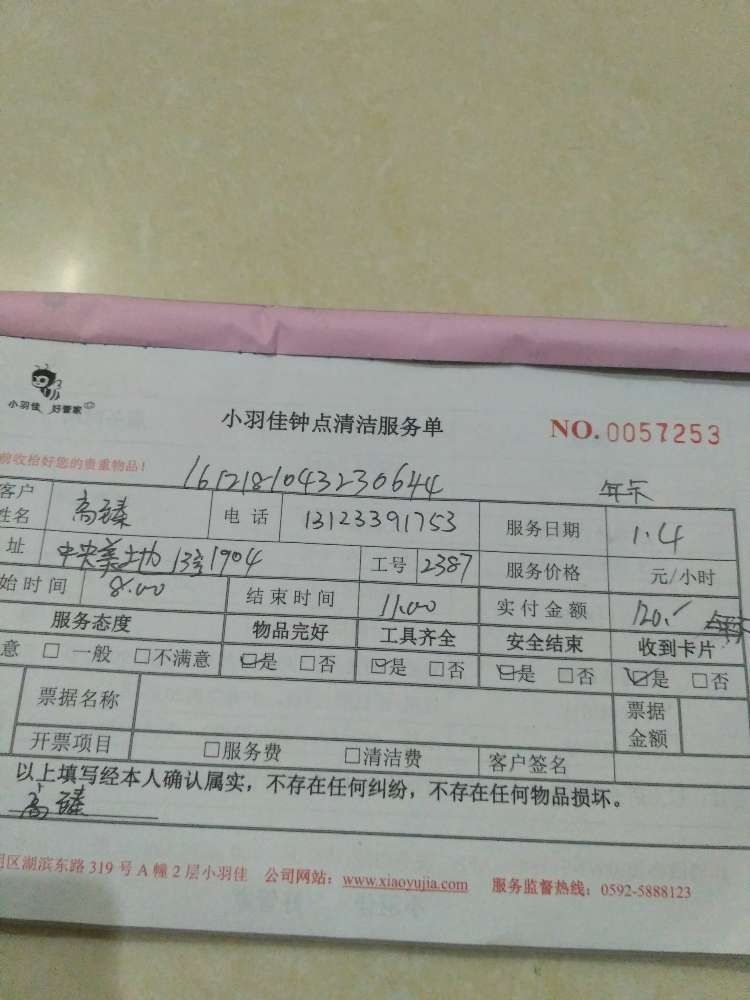 小羽佳 好管家
小羽佳钟点清洁服务单 NO.0057253
前收拾好您的贵重物品!
161218104323064 4 年卡
客户姓名 高臻 电话 13123391753 服务日期 1.4
址 中央美地 13号1904 工号 2387 服务价格 元/小时
始时间 8.00 结束时间 11.00 实付金额 120.- 年卡
服务态度 物品完好 工具齐全 安全结束 收到卡片
意 □一般 □不满意 ☑是 □否 ☑是 □否 ☑是 □否 ☑是 □否
票据名称 票据金额
开票项目 □服务费 □清洁费 客户签名
以上填写经本人确认属实，不存在任何纠纷，不存在任何物品损坏。
高臻
明区湖滨东路319号A幢2层小羽佳 公司网站：www.xiaoyujia.com 服务监督热线：0592-5888123